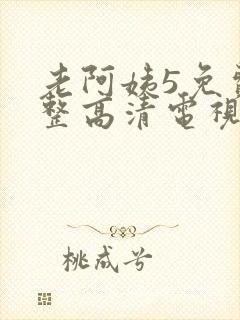 老阿姨5免費
整高清電視
桃成兮